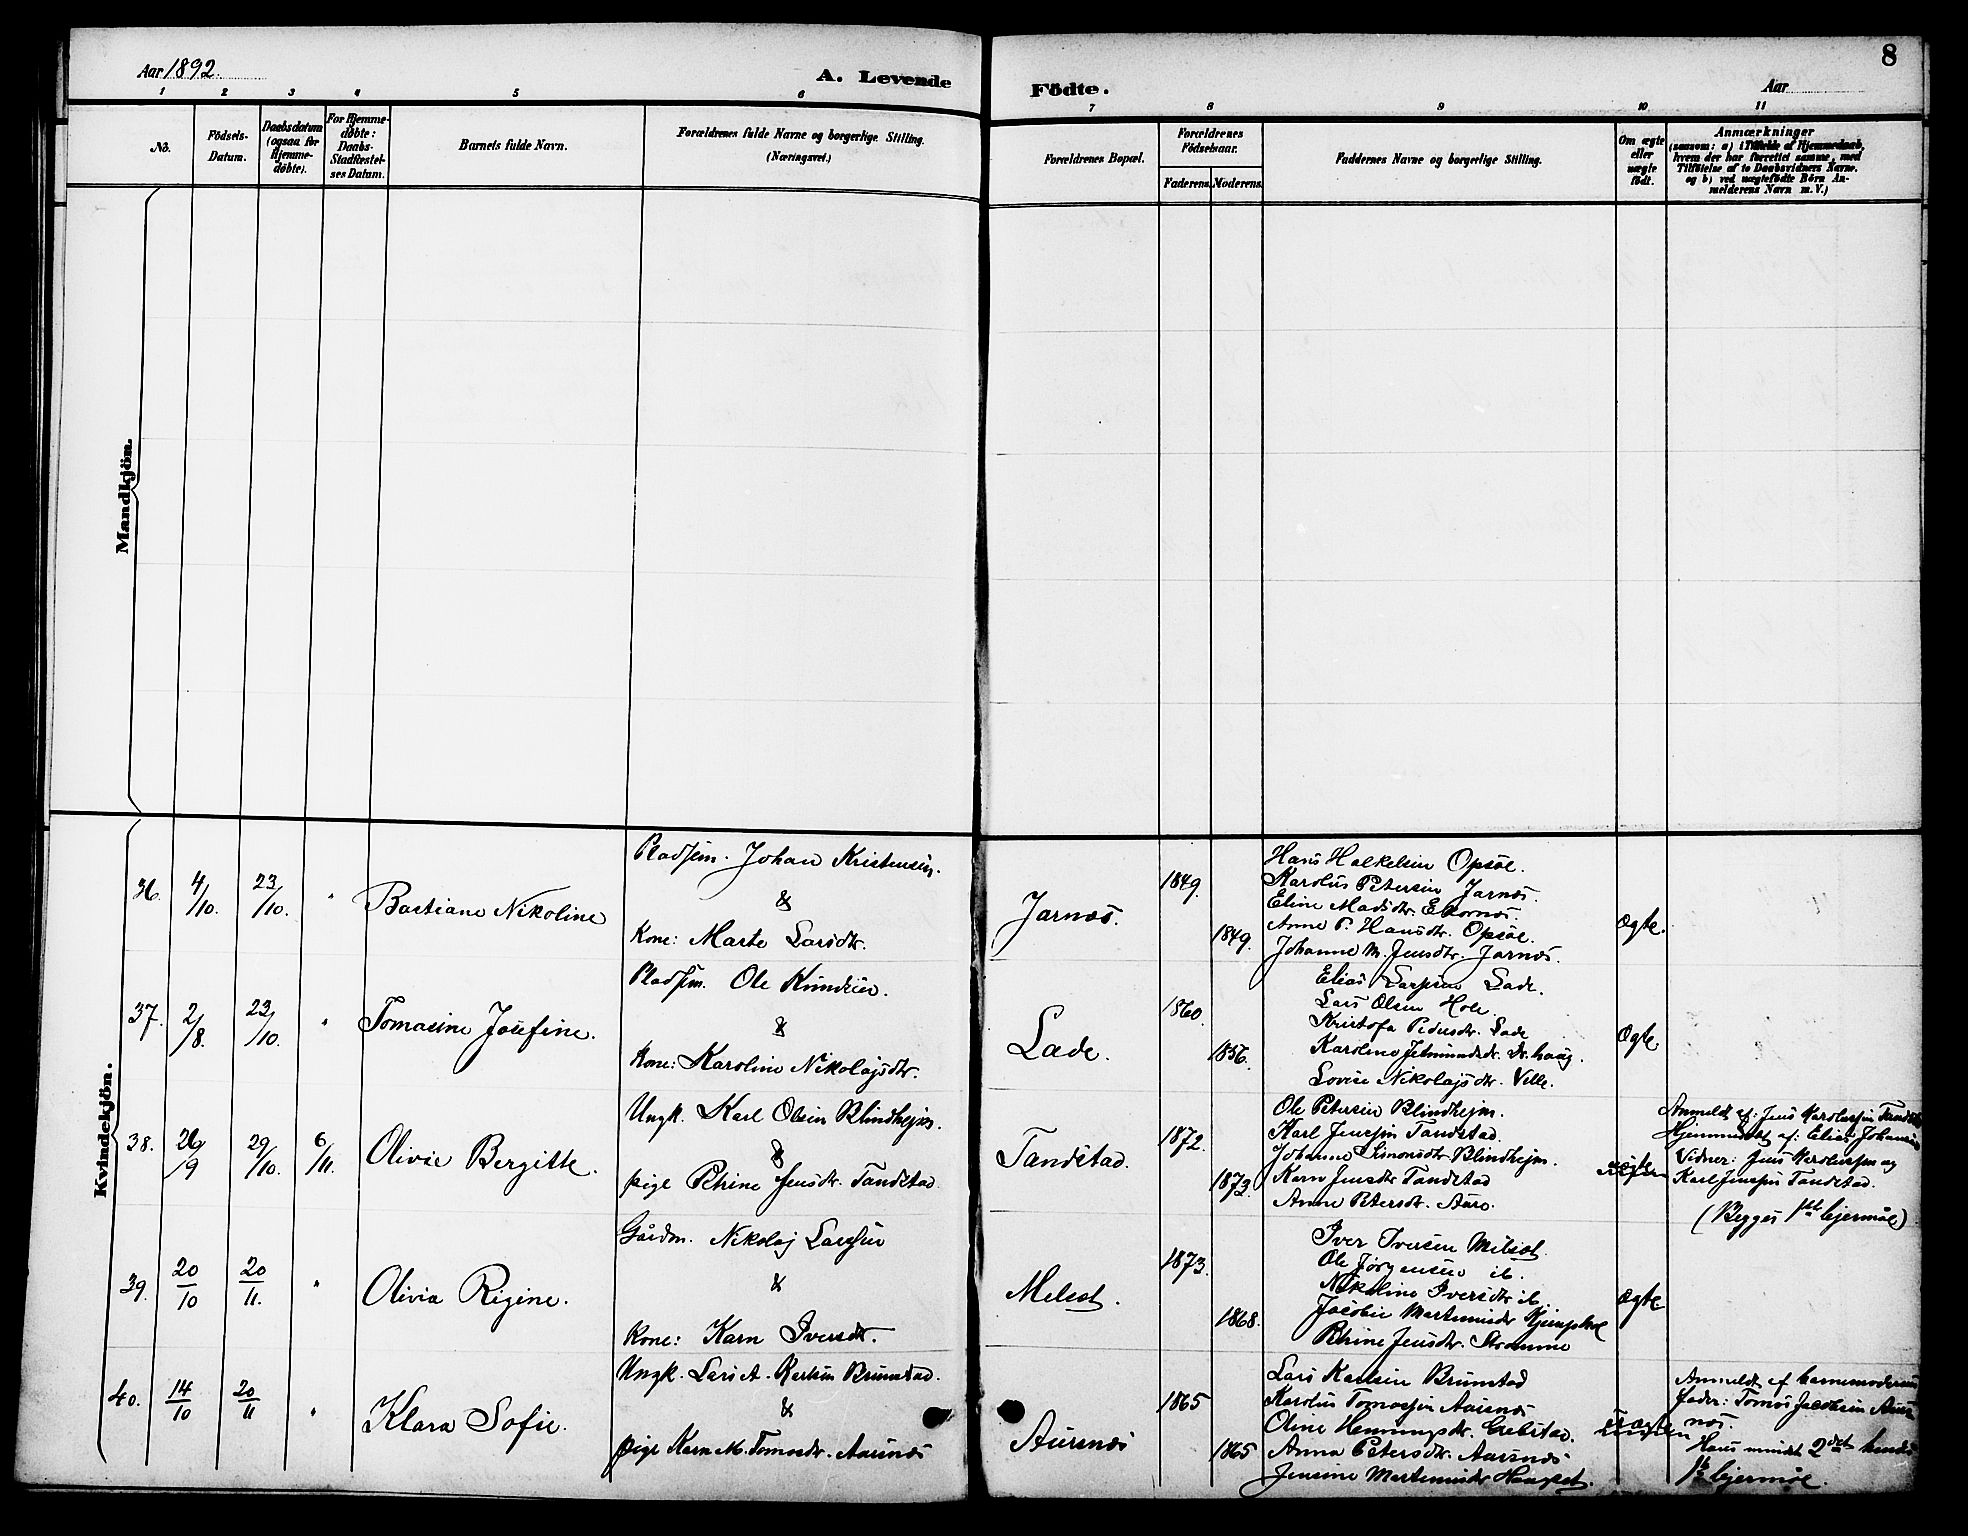 Aar 1892.
A. Levende
Födte.
Aar
8
1 2 3 4 5 6 7 8 9 10 11
No.
Födsels-Datum.
Daabsdatum (ogsaa for Hjemme-døbte).
For Hjemme-døbte: Daabs-Stadfæstel-ses Datum.
Barnets fulde Navn.
Forældrenes fulde Navne og borgerlige Stilling. (Næringsvei.)
Forældrenes Bopæl.
Forældrenes Födselsaar.
Faderens. Moderens.
Faddernes Navne og borgerlige Stilling.
Om ægte eller uægte födt.
Anmærkninger
(saasom: a) i Tilfælde af Hjemmedaab, hvem der har forrettet samme, med Tilföielse af to Daabsvidners Navne, og b) ved uægtefödte Börn An-melderens Navn m. V.)
Mandkjön.
Kvindekjön.
36. 4/10. 23/10. "
Bastiane Nikoline
Pladsm. Johan Kristensen.
&
Kone: Marte Larsdtr.
Jarnæs.
1849.
1849.
Hans Halkelsen Opsøe.
Karolus Petersen Jarnæs.
Eline Madsdtr. Ekornæs.
Anne P. Hansdtr. Opsøe.
Johanne M. Jensdtr. Jarnæs.
Ægte.
37. 2/8. 23/10. "
Tomasine Josefine.
Pladsm. Ole Knudsen.
&
Kone: Karoline Nikolajsdtr.
Lade.
1860.
1856.
Elias Larsen Lade.
Lars Olsen Hole.
Kristofa Pedersdtr. Lade
Karoline Jetmundsdtr.
Lovise Nikolajsdtr. Velle.
Ægte.
38. 26/9 29/10. 6/11.
Olivie Bergitte.
Ungk. Karl Olsen Blindhejm.
&
pige Petrine Jensdtr. Tandstad
Tandstad.
1872.
1873.
Ole Petersen Blindhejm.
Karl Jensen Tandstad.
Johanne Simonsdtr Blindhejm.
Karn Jensdtr Tandstad
Anne Petersdtr. Aure.
Anmeldt af: Jens Karolussen Tandstad
Hjemmedøbt af: Elias Johansen
Vidner: Jens Karolussen og
Karl Jensen Tandstad.
(Begges 1ste lejermål)
39. 20/10 20/11. "
Olivia Rigine.
Gårdm. Nikolaj Larsen
&
Kone: Karn Iversdtr.
Melset.
1873.
1868.
Iver Iversen Melset.
Ole Jörgensen ib.
Nikoline Iversdtr ib
Jacobie Martinusdtr
Petrine Jensdtr. Stromme
Ægte
40. 14/10 20/11 "
Klara Sofie.
Ungk. Lars A. Karlsen Brunstad.
&
pige Karn M. Tomasdtr. Aursnæs
Aursnæs
1865
1865
Lars Karlsen Brunstad
Karolus Tomassen Aursnæs
Oline Henningsdtr. Grebstad.
Anna Petersdtr. Aursnæs
Jensine Martinusdtr
Uægte
Anmeldt af barnemoderens
fader: Tomas Jacobsen Aurs-
næs.
Hans mindst 2det hendes
1ste lejermål.